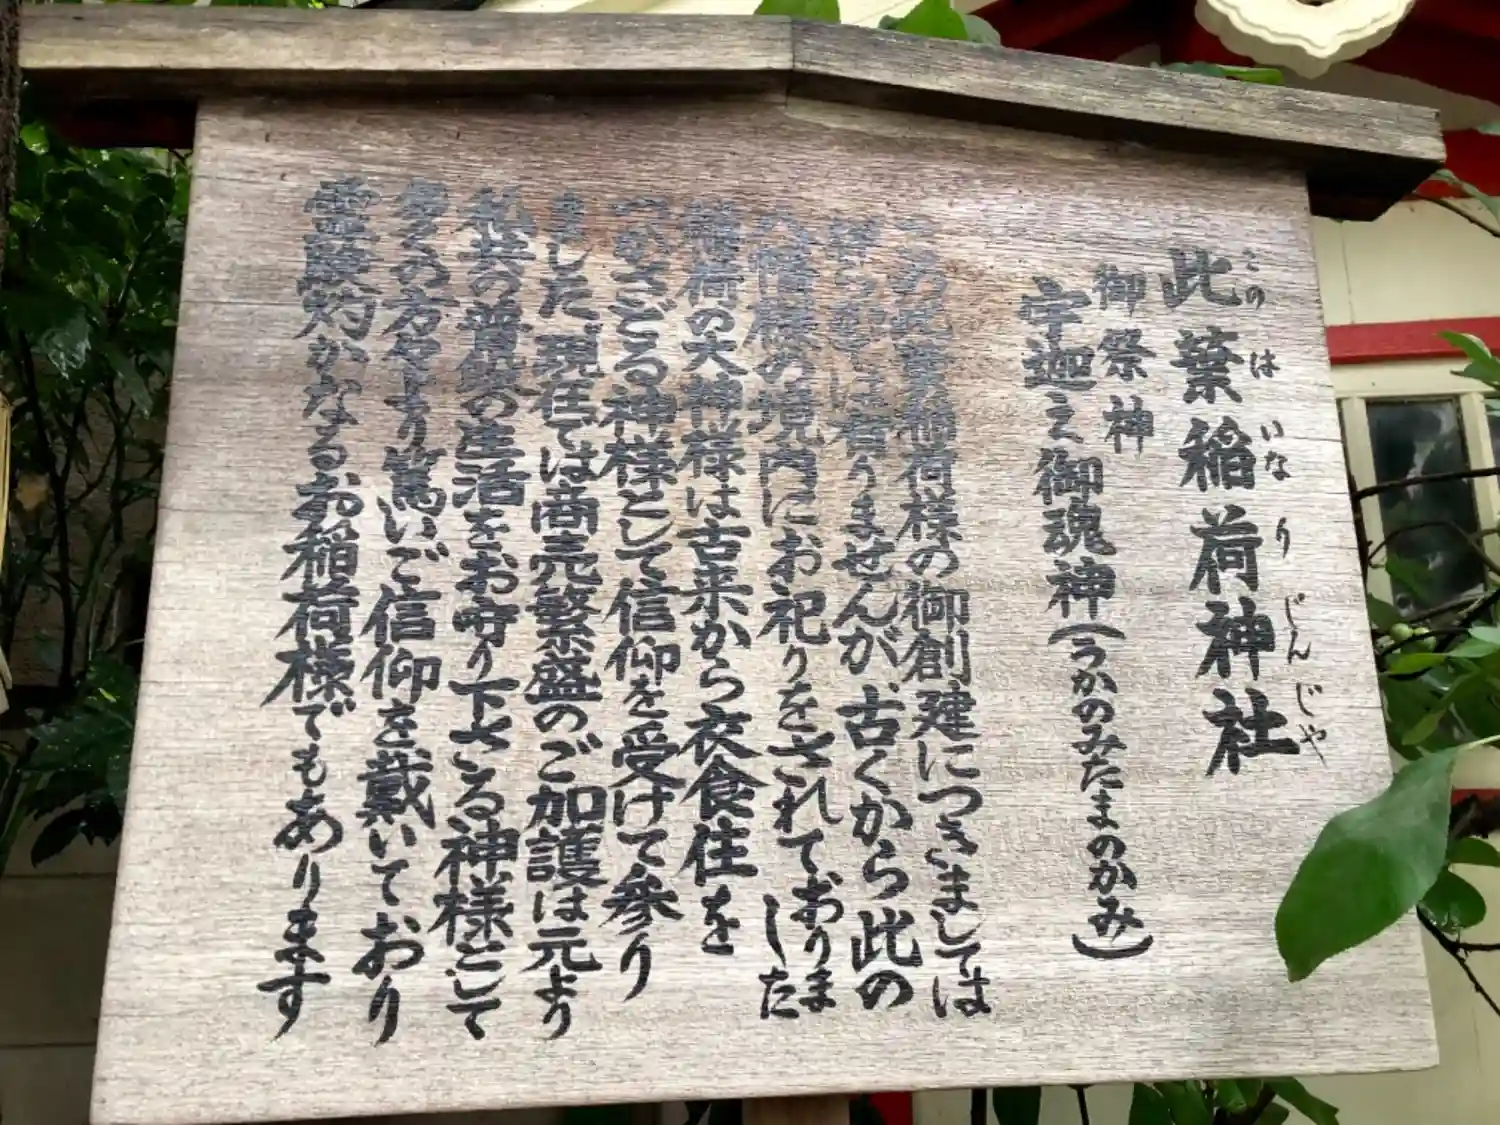 此葉稲荷神社
このはいなりじんじゃ
御祭神
宇迦之御魂神(うかのみたまのかみ)
この此葉稲荷様の御創建につきましては
詳らかでは有りませんが、古くから此の
八幡様の境内にお祀りをされておりました
稲荷の大神様は古来から衣食住を
つかさどる神様として信仰を受けて参り
ました。現在では商売繁盛のご加護は元より
私共の普段の生活をお守り下さる神様として
多くの方々より篤いご信仰を戴いており
霊験灼かなるお稲荷様でもあります